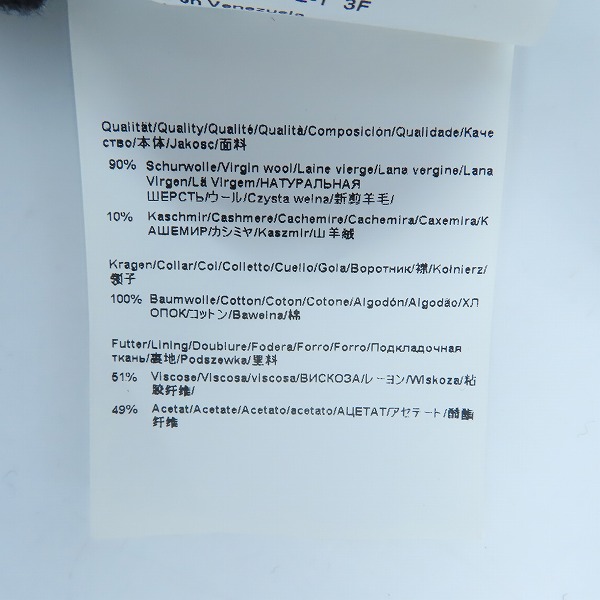 en Venezuela 3F
Qualität/Quality/Qualité/Qualità/Composición/Qualidade/Каче
ство/本体/Jakosc/面料
90% Schurwolle/Virgin wool/Laine vierge/Lana vergine/Lana
Virgen/Lã Virgem/НАТУРАЛЬНАЯ
ШЕРСТЬ/ウール/Czysta welna/新剪羊毛/
10% Kaschmir/Cashmere/Cachemire/Cachemira/Caxemira/К
АШЕМИР/カシミヤ/Kaszmir/山羊绒
Kragen/Collar/Col/Colletto/Cuello/Gola/Воротник/襟/Kołnierz/
领子
100% Baumwolle/Cotton/Coton/Cotone/Algodón/Algodão/ХЛ
ОПОК/コットン/Bawelna/棉
Futter/Lining/Doublure/Fodera/Forro/Forro/Подкладочная
ткань/裏地/Podszewka/里料
51% Viscose/Viscosa/viscosa/ВИСКОЗА/レーヨン/Wiskoza/粘
胶纤维/
49% Acetat/Acetate/Acetato/acetato/АЦЕТАТ/アセテート/醋酯
纤维